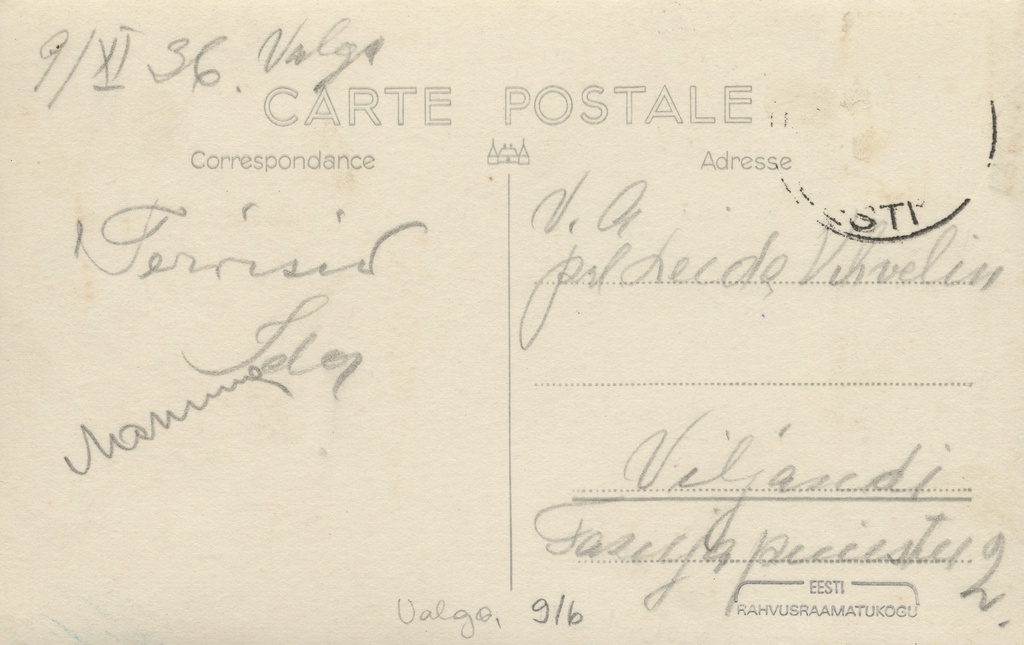 9/XI 36. Valga
CARTE POSTALE
Correspondance
Adresse
ESTI
Tervisid
Ida
Mamma
V. A
prl Leida Vihvelin
Viljandi
2
Valga, 9/6
EESTI
RAHVUSRAAMATUKOGU